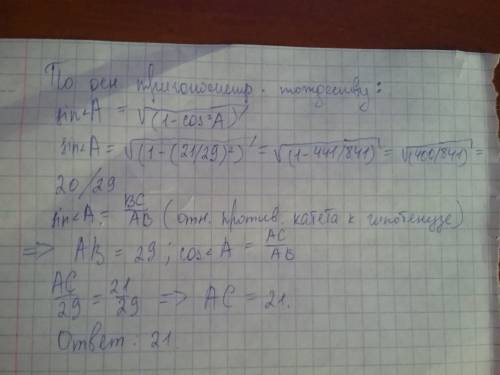 По осн тригонометр. тождеству:
sin∠A = √(1-cos²A)
sin∠A = √(1-(21/29)²) = √(1-441/841) = √(400/841) =
20/29
sin∠A = BC/AB (отн. против. катета к гипотенузе)
=> AB = 29; cos∠A = AC/AB
AC/29 = 21/29 => AC = 21.
Ответ: 21.